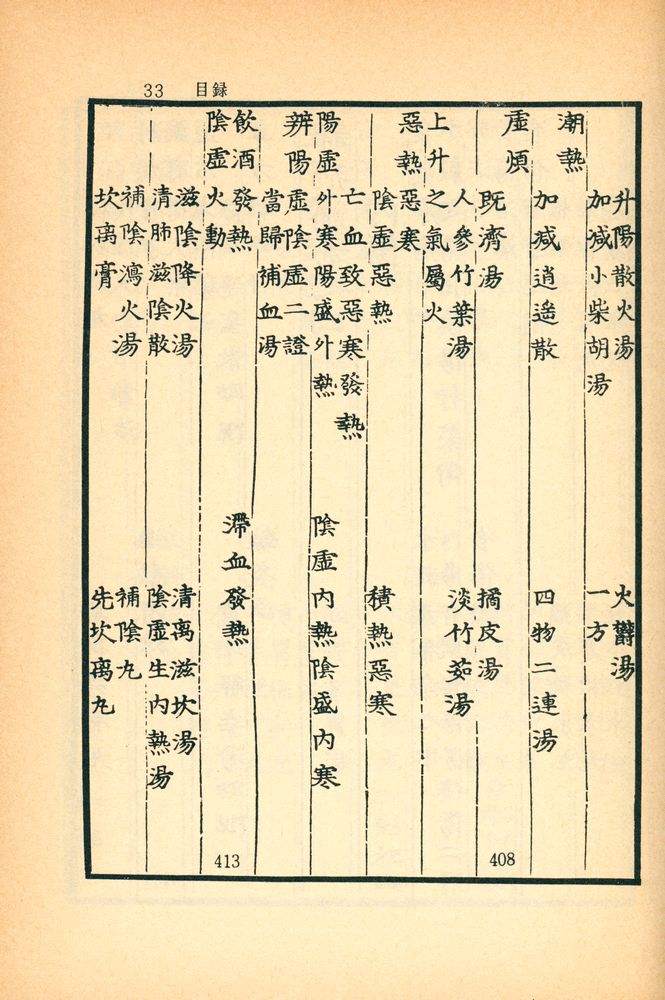 33 目録
升陽散火湯 火欝湯
加減小柴胡湯 一方
潮熱
加減逍遙散 四物二連湯
虛煩
既濟湯 橘皮湯
人參竹葉湯 淡竹茹湯
上升之氣屬火
惡熱惡寒
陰虛惡熱 積熱惡寒
亡血致惡寒發熱
陽虛外寒陽盛外熱 陰虛內熱陰盛內寒
辨陽虛陰虛二證
當歸補血湯
飲酒發熱 滯血發熱
陰虛火動
滋陰降火湯 清离滋坎湯
清肺滋陰散 陰虛生內熱湯
補陰瀉火湯 補陰丸
坎离膏 先坎离丸
408
413